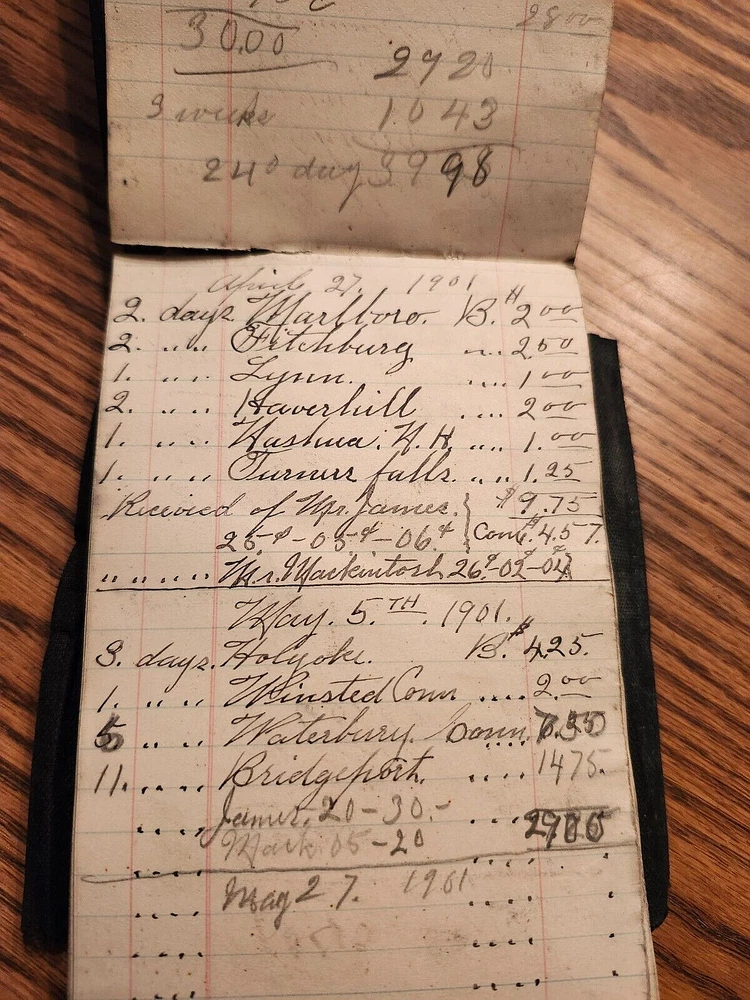 28.00
30.00
2920
3 weeks 1.043
24 0 day 3998
April 27. 1901
2. days. Marlboro. B. $ 2 00
2. " " Fitchburg " " 2 50
1. " " Lynn. " " 1 00
2. " " Haverhill " " 2 00
1. " " Nashua. N.H. " " 1.00
1. " " Turners falls. " " 1.25
Received of Mr. James. $ 9.75
25¢-05¢-06¢ Com. $ 4.57.
" " " " Mr. Mackintosh 26¢-02-04¢
May. 5.TH. 1901.
3. days. Holyoke. B. $ 4.25.
1. " " Winsted Conn " " 2.00
5 " " Waterbury. Conn.
11. " " Bridgeport. " " 1475.
" " James. 20-30.- " " 2900
Mack 05-20
" " May 27. 1901 " "